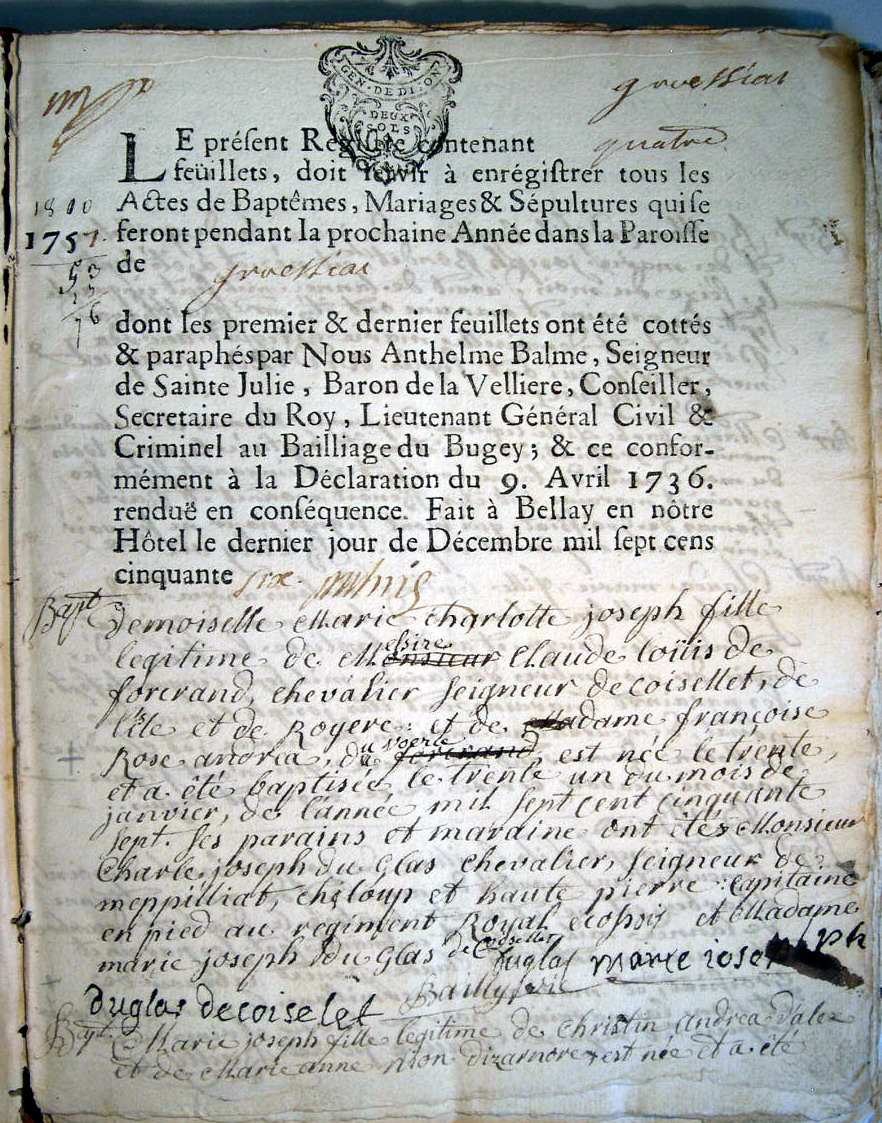 GEN. DE DIJON
DEUX
SOLS
groessiat
LE préſent Regiſtre contenant quatre
feüillets, doit ſervir à enrégiſtrer tous les
1800
Actes de Baptêmes, Mariages & Sépultures qui ſe
1757.
feront pendant la prochaine Année dans la Paroiſſe
de groessiat
dont les premier & dernier feuillets ont été cottés
& paraphés par Nous Anthelme Balme, Seigneur
de Sainte Julie, Baron de la Velliere, Conſeiller,
Secretaire du Roy, Lieutenant Général Civil &
Criminel au Bailliage du Bugey; & ce confor-
mément à la Déclaration du 9. Avril 1736.
renduë en conſéquence. Fait à Bellay en nôtre
Hôtel le dernier jour de Décembre mil ſept cens
cinquante six.
Bapt
demoiselle Marie charlotte joseph fille
legitime de Messire Claude loüis de
forcrand, chevalier seigneur de coisellet, de
l'ile et de Rogere: et de Madame françoise
Rose andréa, du forcrand, est née le trente,
et a été baptisée le trente un du mois de
janvier, de l'année mil sept cent cinquante
sept. ses parains et maraine ont étés Monsieur
Charle joseph du Glas chevalier, seigneur de
meppilliat, chaloup et haute pierre: capitaine
en pied au regiment Royal ecossois et Madame
marie joseph du Glas de Coisellet
duglas marie joseph
duglas de coiselet Bailly
Bapt
Marie joseph fille legitime de Christin Andrea
et de Marie anne dizarnore est née et a été